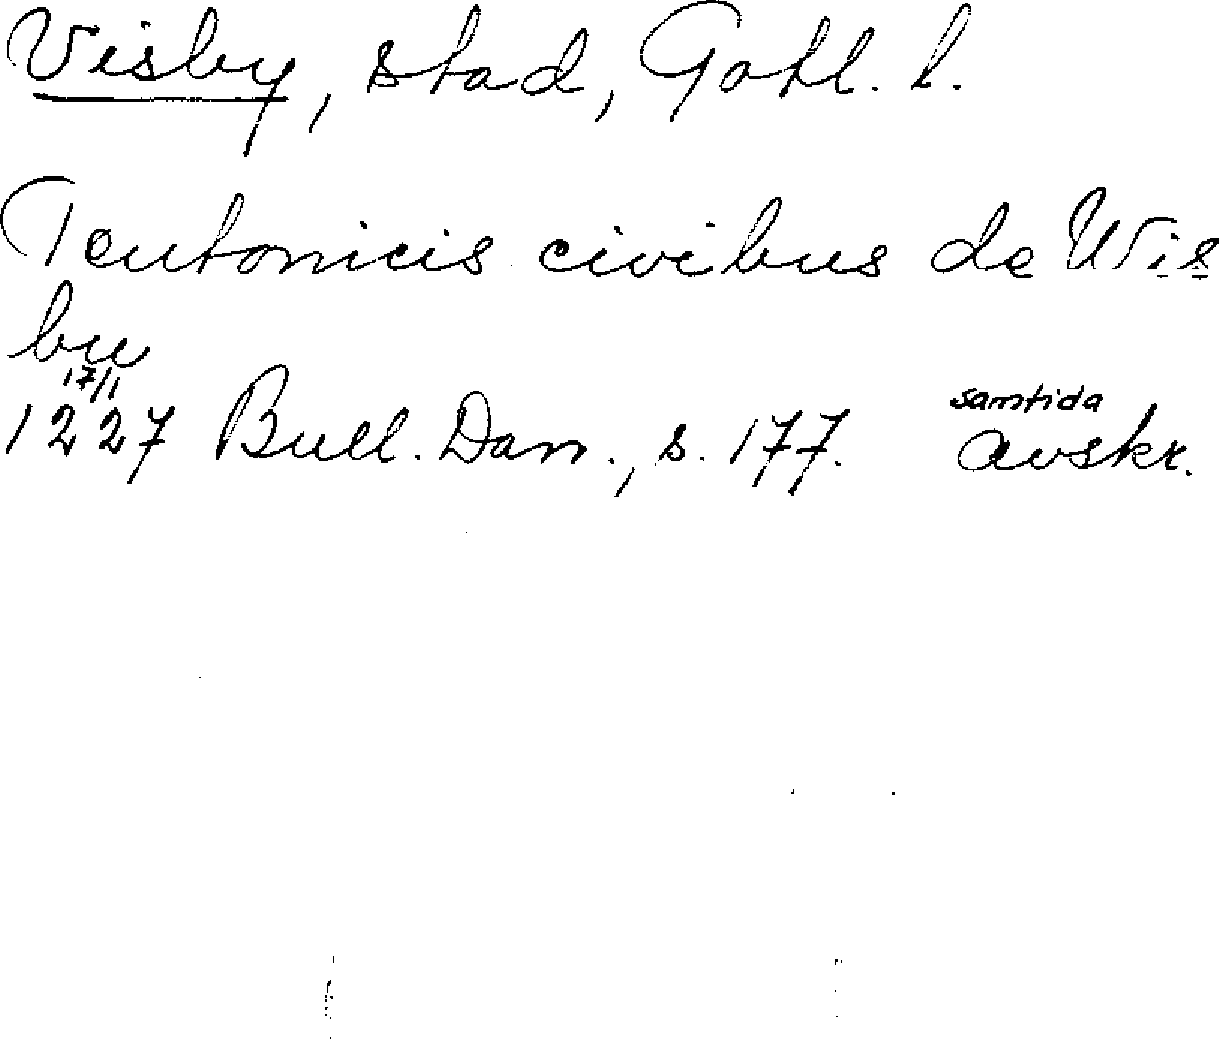 Visby, stad, Gotl. l.
Teutonicis civibus de Wis
bu
17/1
samtida
1227 Bull. Dan., s. 177. avskr.